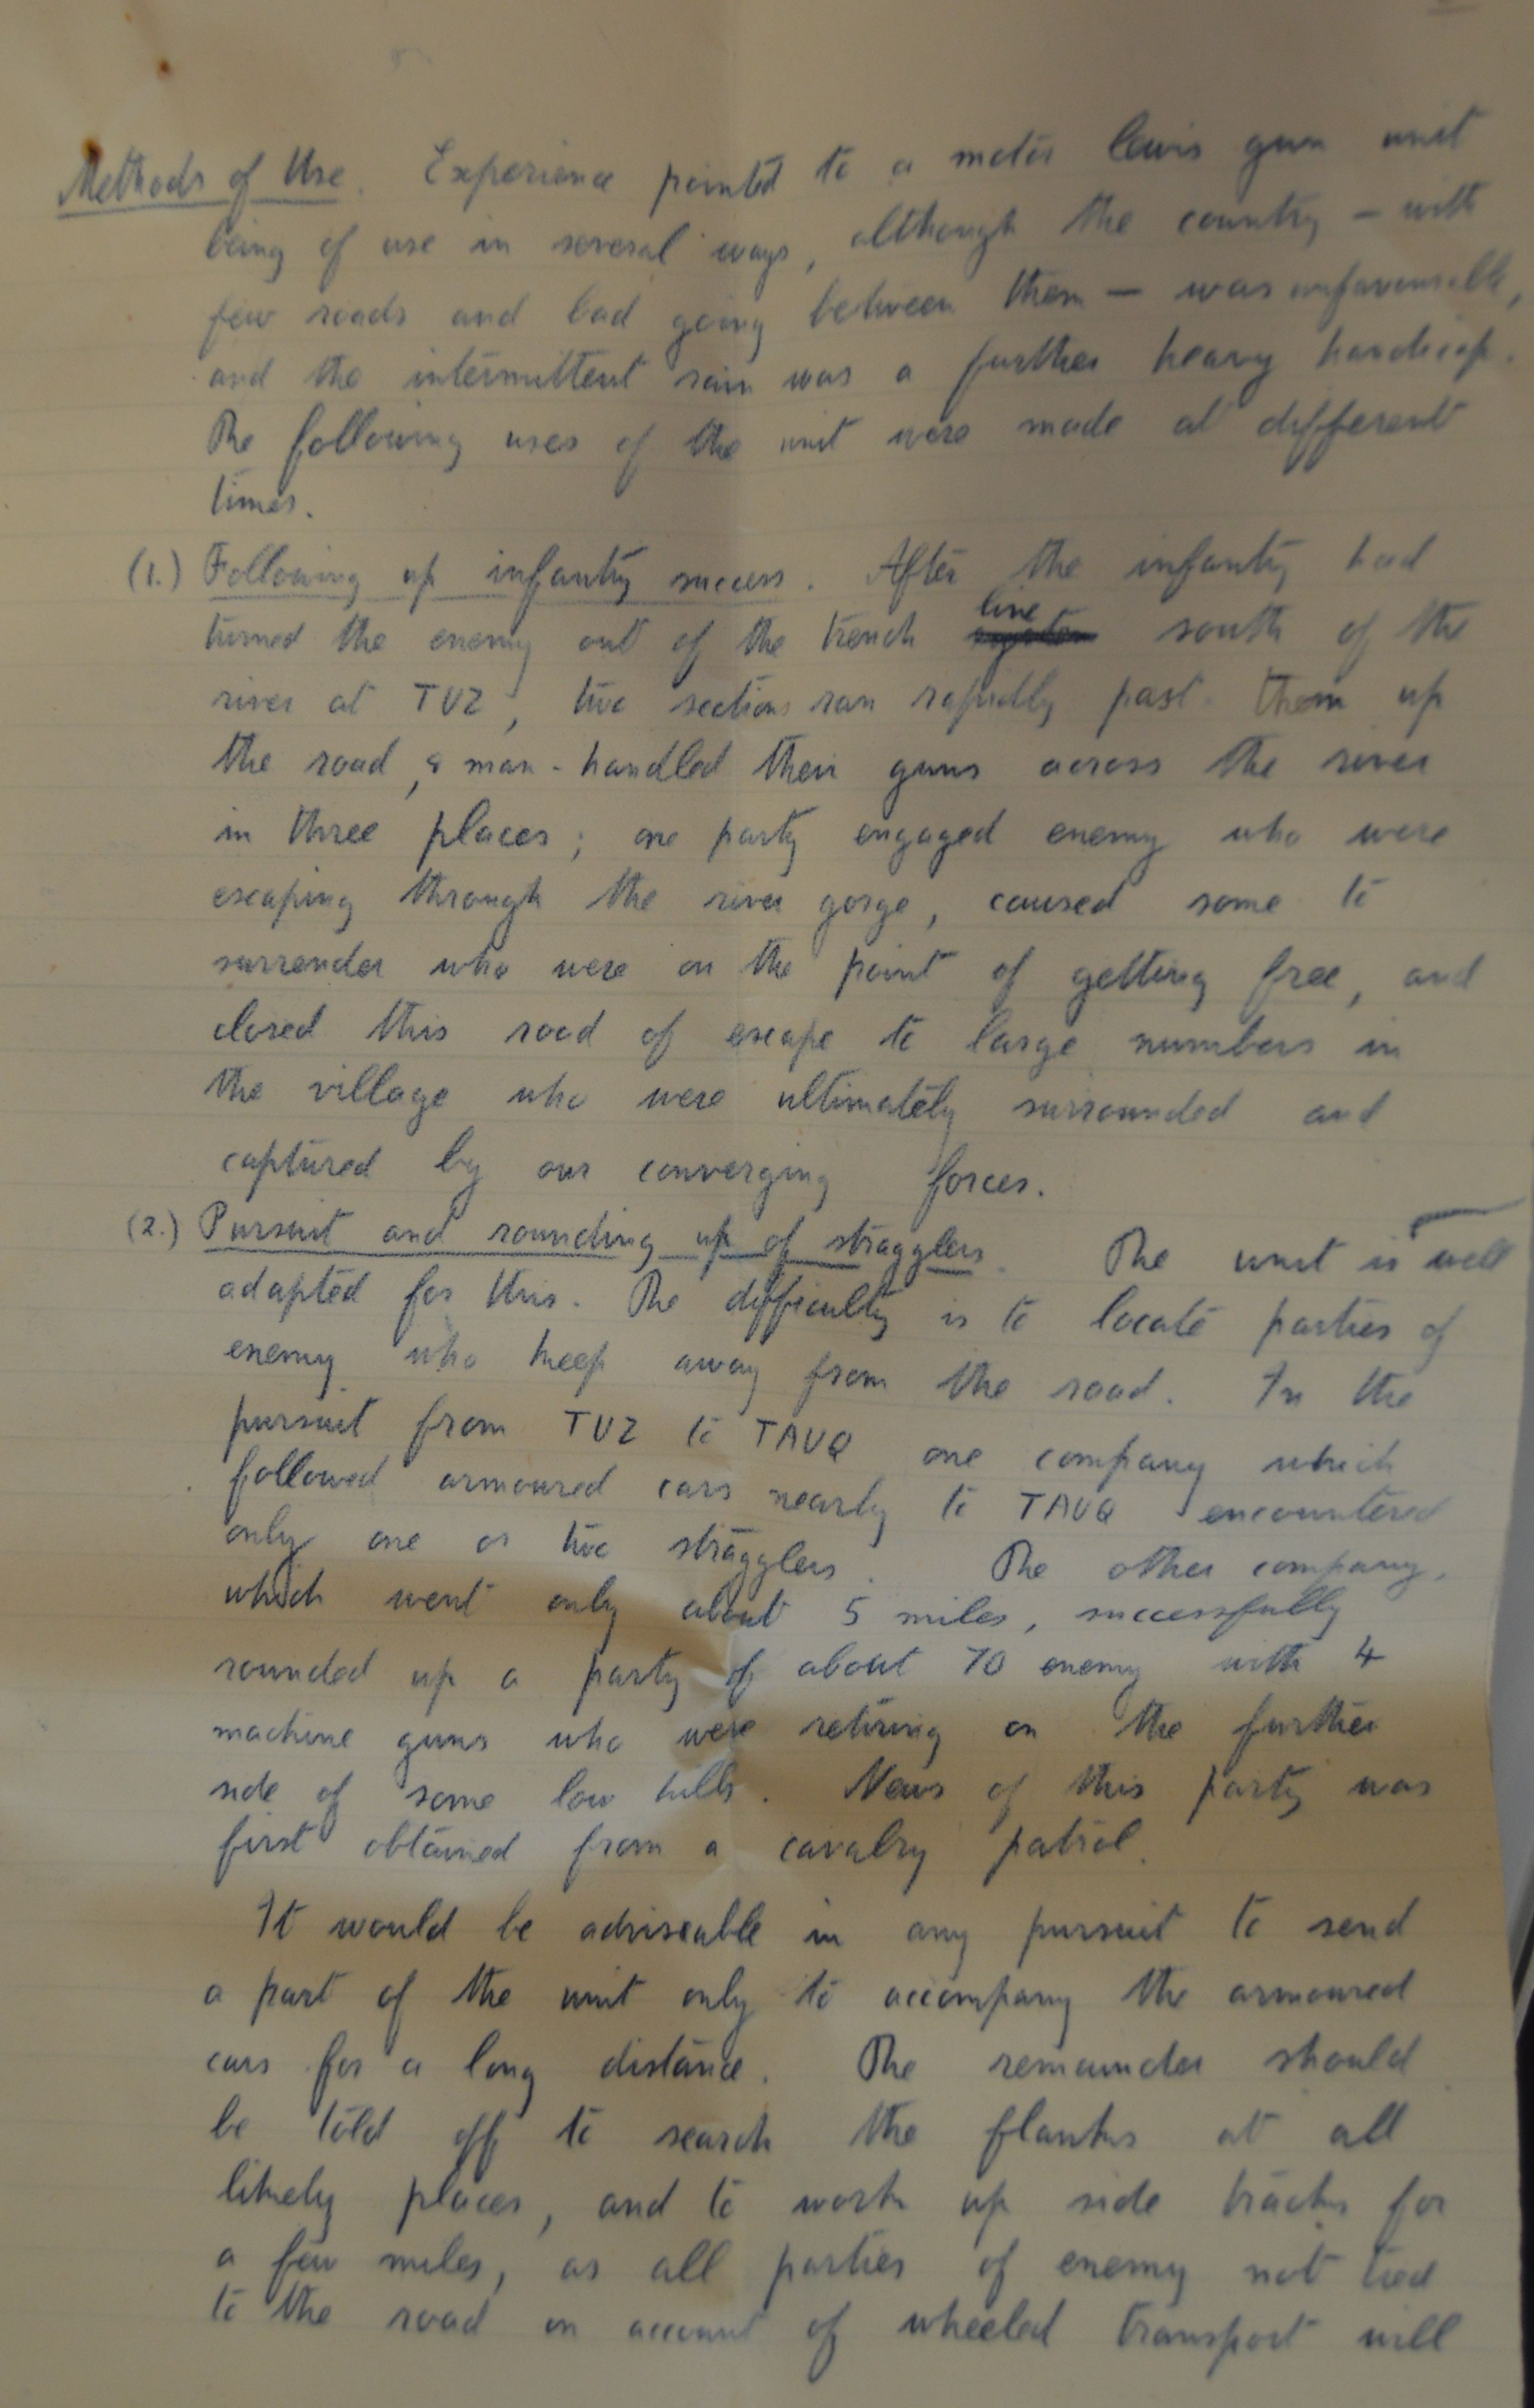 Methods of Use. Experience pointed to a motor lewis gun unit
being of use in several ways, although the country – with
few roads and bad going between them – was unfavourable,
and the intermittent rain was a further heavy handicap.
The following uses of the unit were made at different
times.
(1.) Following up infantry success. After the infantry had
line
turned the enemy out of the trench south of the
river at TUZ, two sections ran rapidly past them up
the road, & man-handled their guns across the river
in three places; one party engaged enemy who were
escaping through the river gorge, caused some to
surrender who were on the point of getting free, and
closed this road of escape to large numbers in
the village who were ultimately surrounded and
captured by our converging forces.
(2.) Pursuit and rounding up of stragglers. The unit is well
adapted for this. The difficulty is to locate parties of
enemy who keep away from the road. In the
pursuit from TUZ to TAUQ one company which
followed armoured cars nearly to TAUQ encountered
only one or two stragglers. The other company,
which went only about 5 miles, successfully
rounded up a party of about 70 enemy with 4
machine guns who were retiring on the further
side of some low hills. News of this party was
first obtained from a cavalry patrol.
It would be adviseable in any pursuit to send
a part of the unit only to accompany the armoured
cars for a long distance. The remainder should
be told off to search the flanks at all
likely places, and to work up side tracks for
a few miles, as all parties of enemy not tied
to the road on account of wheeled transport will